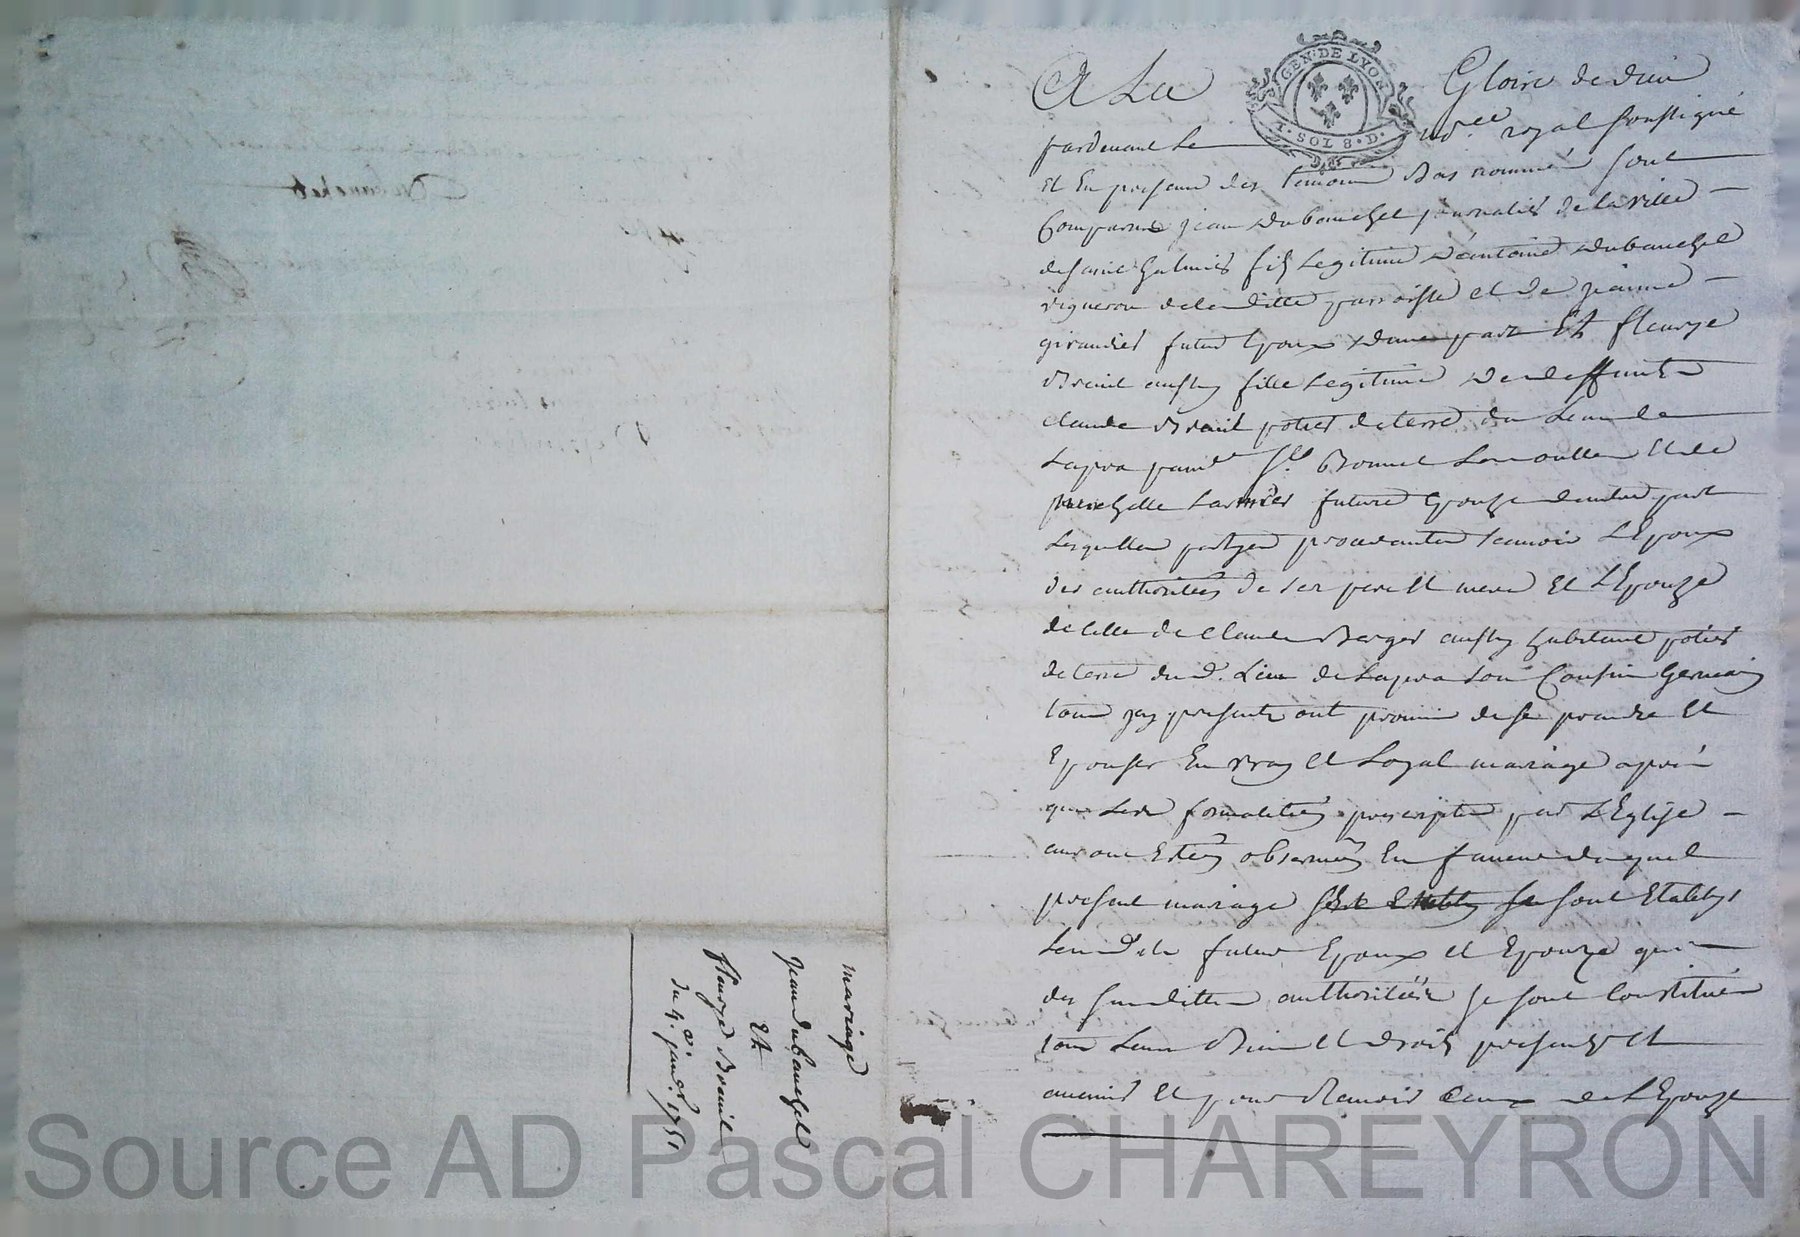 A La Gloire de dieu
GEN. DE LYON
1. SOL 8. D.
pardevant Le no.re royal soussigné
Et En presence des temoins Bas nommés sont
Comparus jean dubouchet journalier de la ville
de saint galmier fils Legitime d'antoine dubouchet
vigneron de la ditte parroisse et de jeanne
giraudet futur Epoux d'une part Et fleurye
aussy fille Legitime de deffunt
claude potier de terre du Lieu de
Lapra st Bonnet Les oulles Et de
michelle future Epouze d'autre part
Lesquelles partyes procedantes scavoir L'Epoux
des authoritées de ses pere Et mere Et L'Epouze
de celle de claude Berger aussy habitant potier
de terre du d. Lieu de Lapra son Cousin Germain
tous icy presents ont promis de se prendre Et
Epouser En vray Et Loyal mariage après
que Les formalitées prescriptes par L'Eglise
auront Estées observées En faveur duquel
present mariage se sont Etablys
Les dits futur Epoux et Epouze qui
des susdittes authoritées se sont Constitués
tous Leurs Biens Et droits presents Et
avenirs Et pour Scavoir Ceux de L'Epouze
mariage
jean dubouchet
Et
fleurye
du 4e janv. 1751
Source AD Pascal CHAREYRON